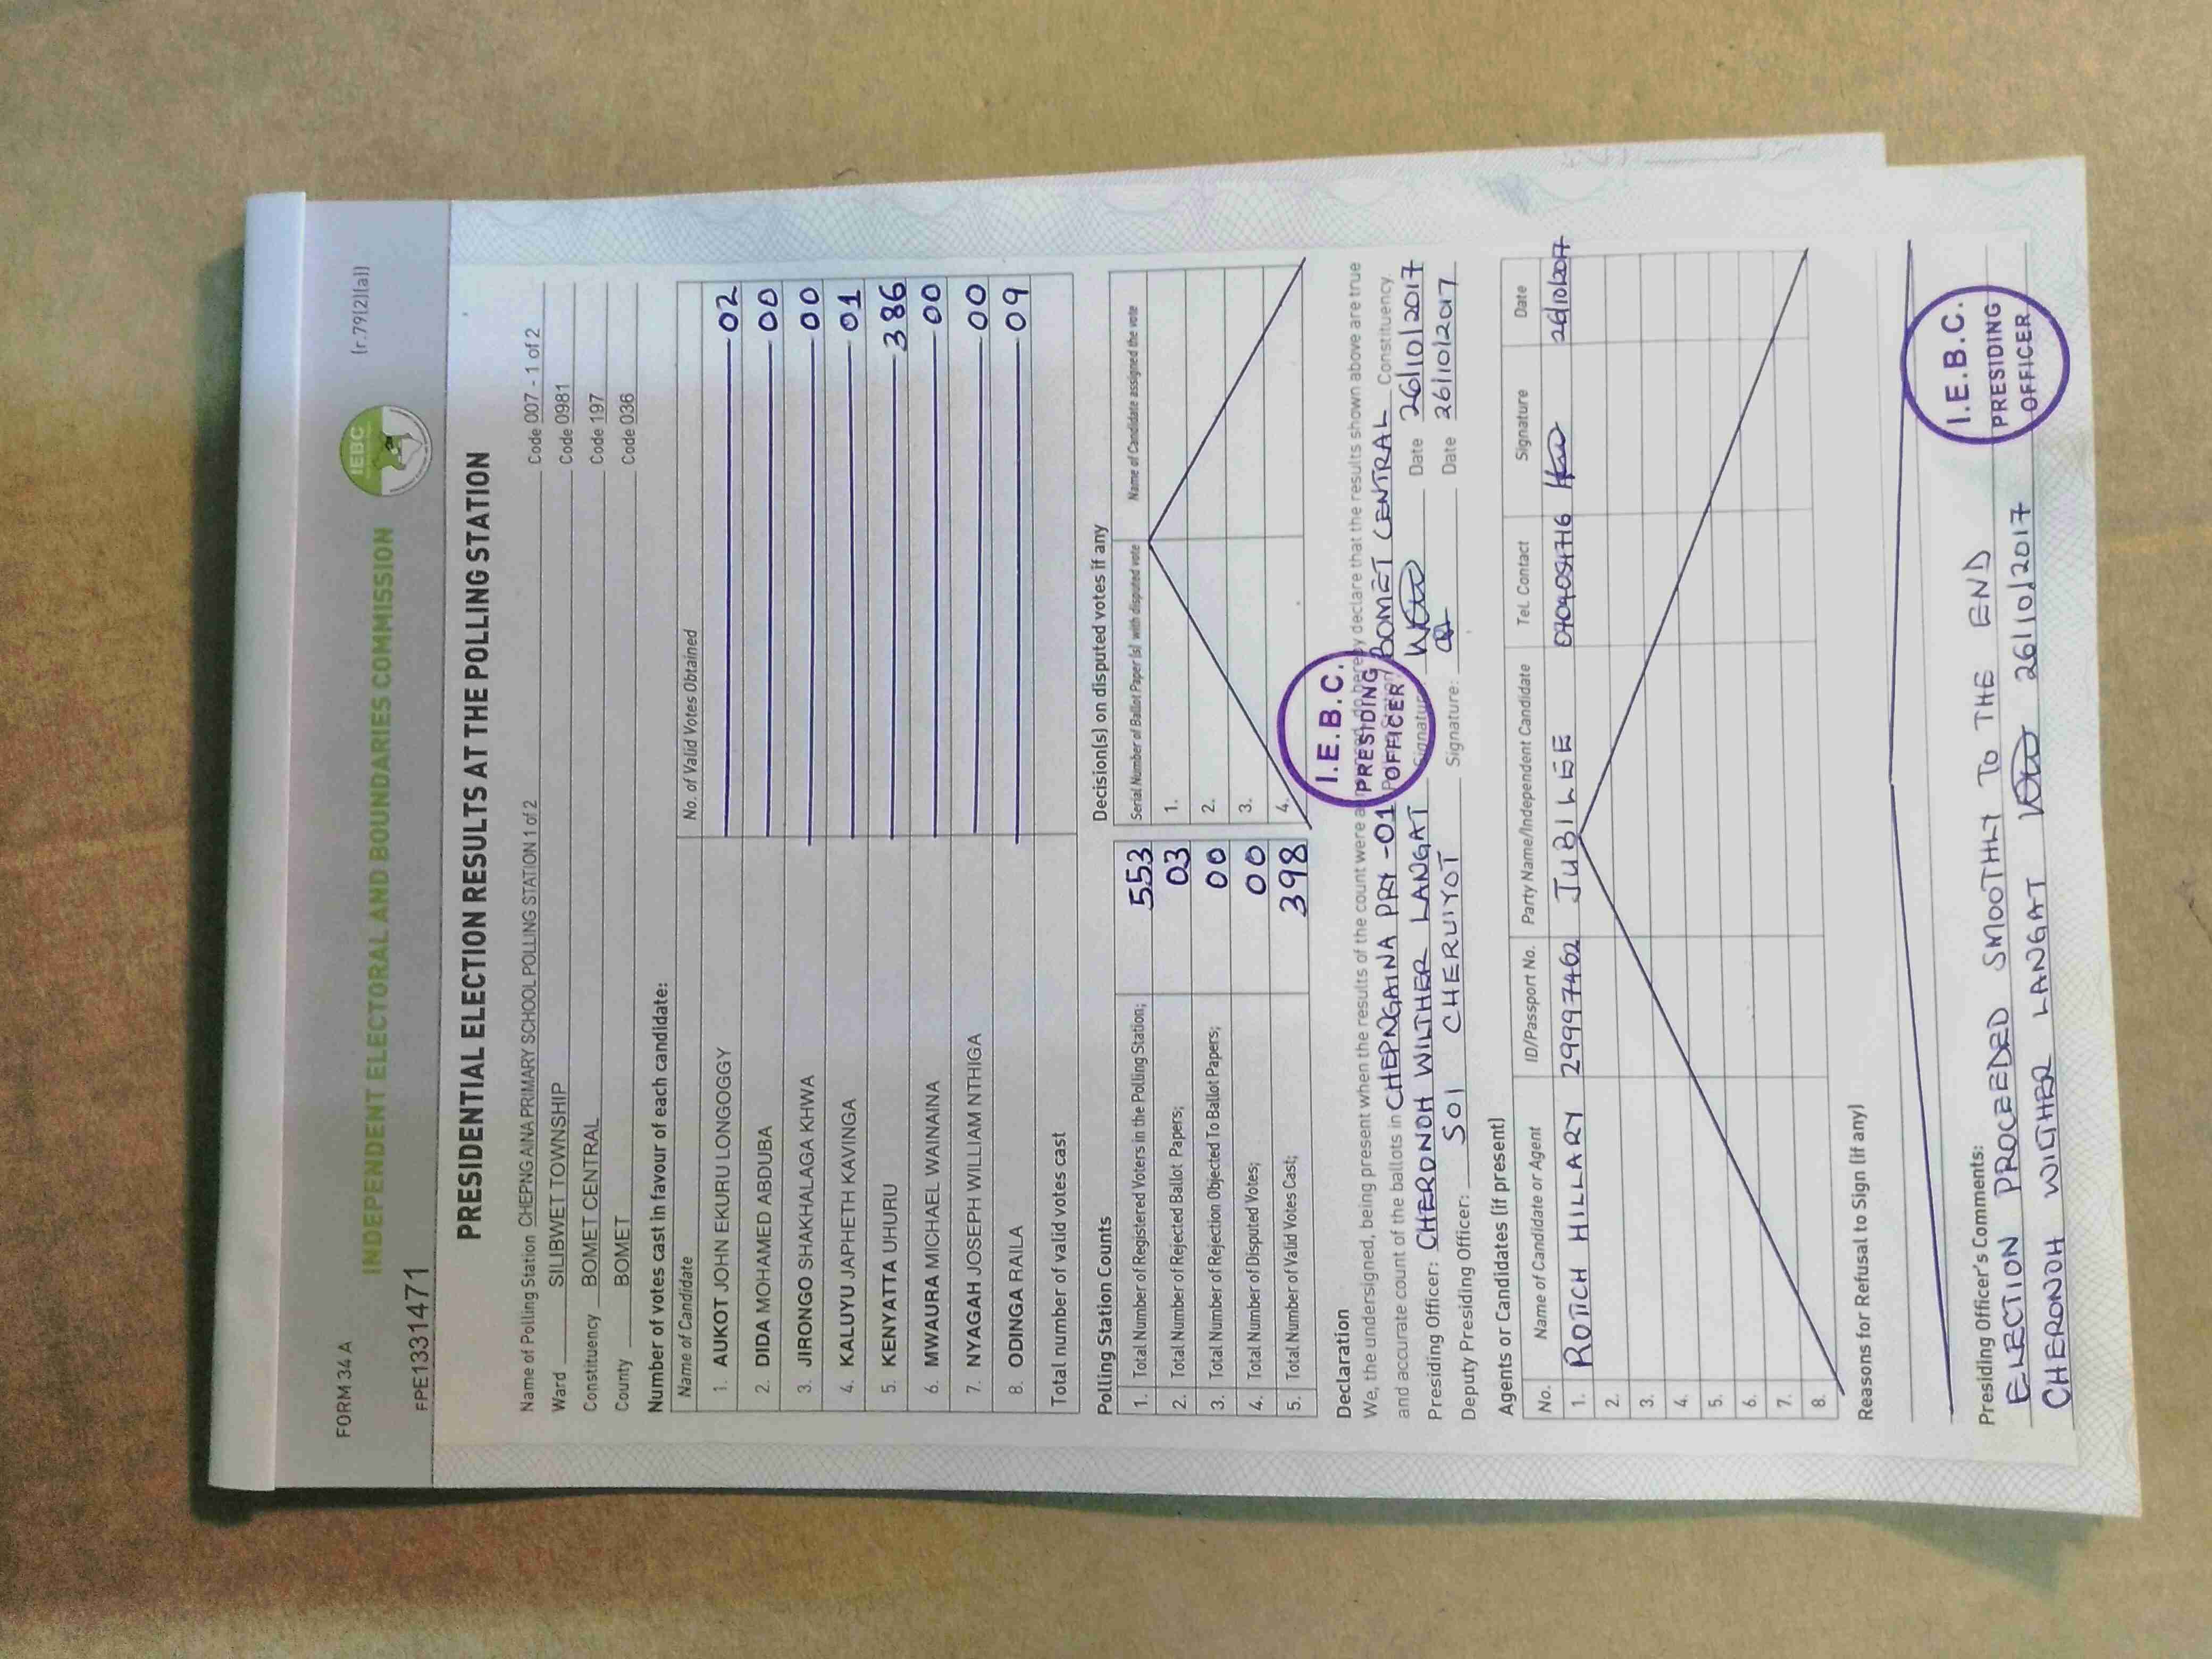 FORM 34 A
(r.79(2)(a))
INDEPENDENT ELECTORAL AND BOUNDARIES COMMISSION
IEBC
FPE1331471
PRESIDENTIAL ELECTION RESULTS AT THE POLLING STATION
Name of Polling Station CHEPNGAINA PRIMARY SCHOOL POLLING STATION 1 of 2 Code 007 - 1 of 2
Ward SILIBWET TOWNSHIP Code 0981
Constituency BOMET CENTRAL Code 197
County BOMET Code 036
Number of votes cast in favour of each candidate:
Name of Candidate No. of Valid Votes Obtained
1. AUKOT JOHN EKURU LONGOGGY 02
2. DIDA MOHAMED ABDUBA 00
3. JIRONGO SHAKHALAGA KHWA 00
4. KALUYU JAPHETH KAVINGA 01
5. KENYATTA UHURU 386
6. MWAURA MICHAEL WAINAINA 00
7. NYAGAH JOSEPH WILLIAM NTHIGA 00
8. ODINGA RAILA 09
Total number of valid votes cast
Polling Station Counts
1. Total Number of Registered Voters in the Polling Station; 553
2. Total Number of Rejected Ballot Papers; 03
3. Total Number of Rejection Objected To Ballot Papers; 00
4. Total Number of Disputed Votes; 00
5. Total Number of Valid Votes Cast; 398
Decision(s) on disputed votes if any
Serial Number of Ballot Paper (s) with disputed vote Name of Candidate assigned the vote
1.
2.
3.
4.
I.E.B.C.
PRESIDING
OFFICER
Declaration
We, the undersigned, being present when the results of the count were do hereby declare that the results shown above are true
and accurate count of the ballots in CHEPNGAINA PRY -01 BOMET CENTRAL Constituency.
Presiding Officer: CHERONOH WILTHER LANGAT Signature: Date 26/10/2017
Deputy Presiding Officer: SOI CHERUIYOT Signature: Date 26/10/2017
Agents or Candidates (if present)
No. Name of Candidate or Agent ID/Passport No. Party Name/Independent Candidate Tel. Contact Signature Date
1. ROTICH HILLARY 299997462 JUBILEE 26/10/2017
2.
3.
4.
5.
6.
7.
8.
Reasons for Refusal to Sign (if any)
Presiding Officer's Comments:
ELECTION PROCEEDED SMOOTHLY TO THE END
CHERONOH WILTHER LANGAT 26/10/2017
I.E.B.C.
PRESIDING
OFFICER